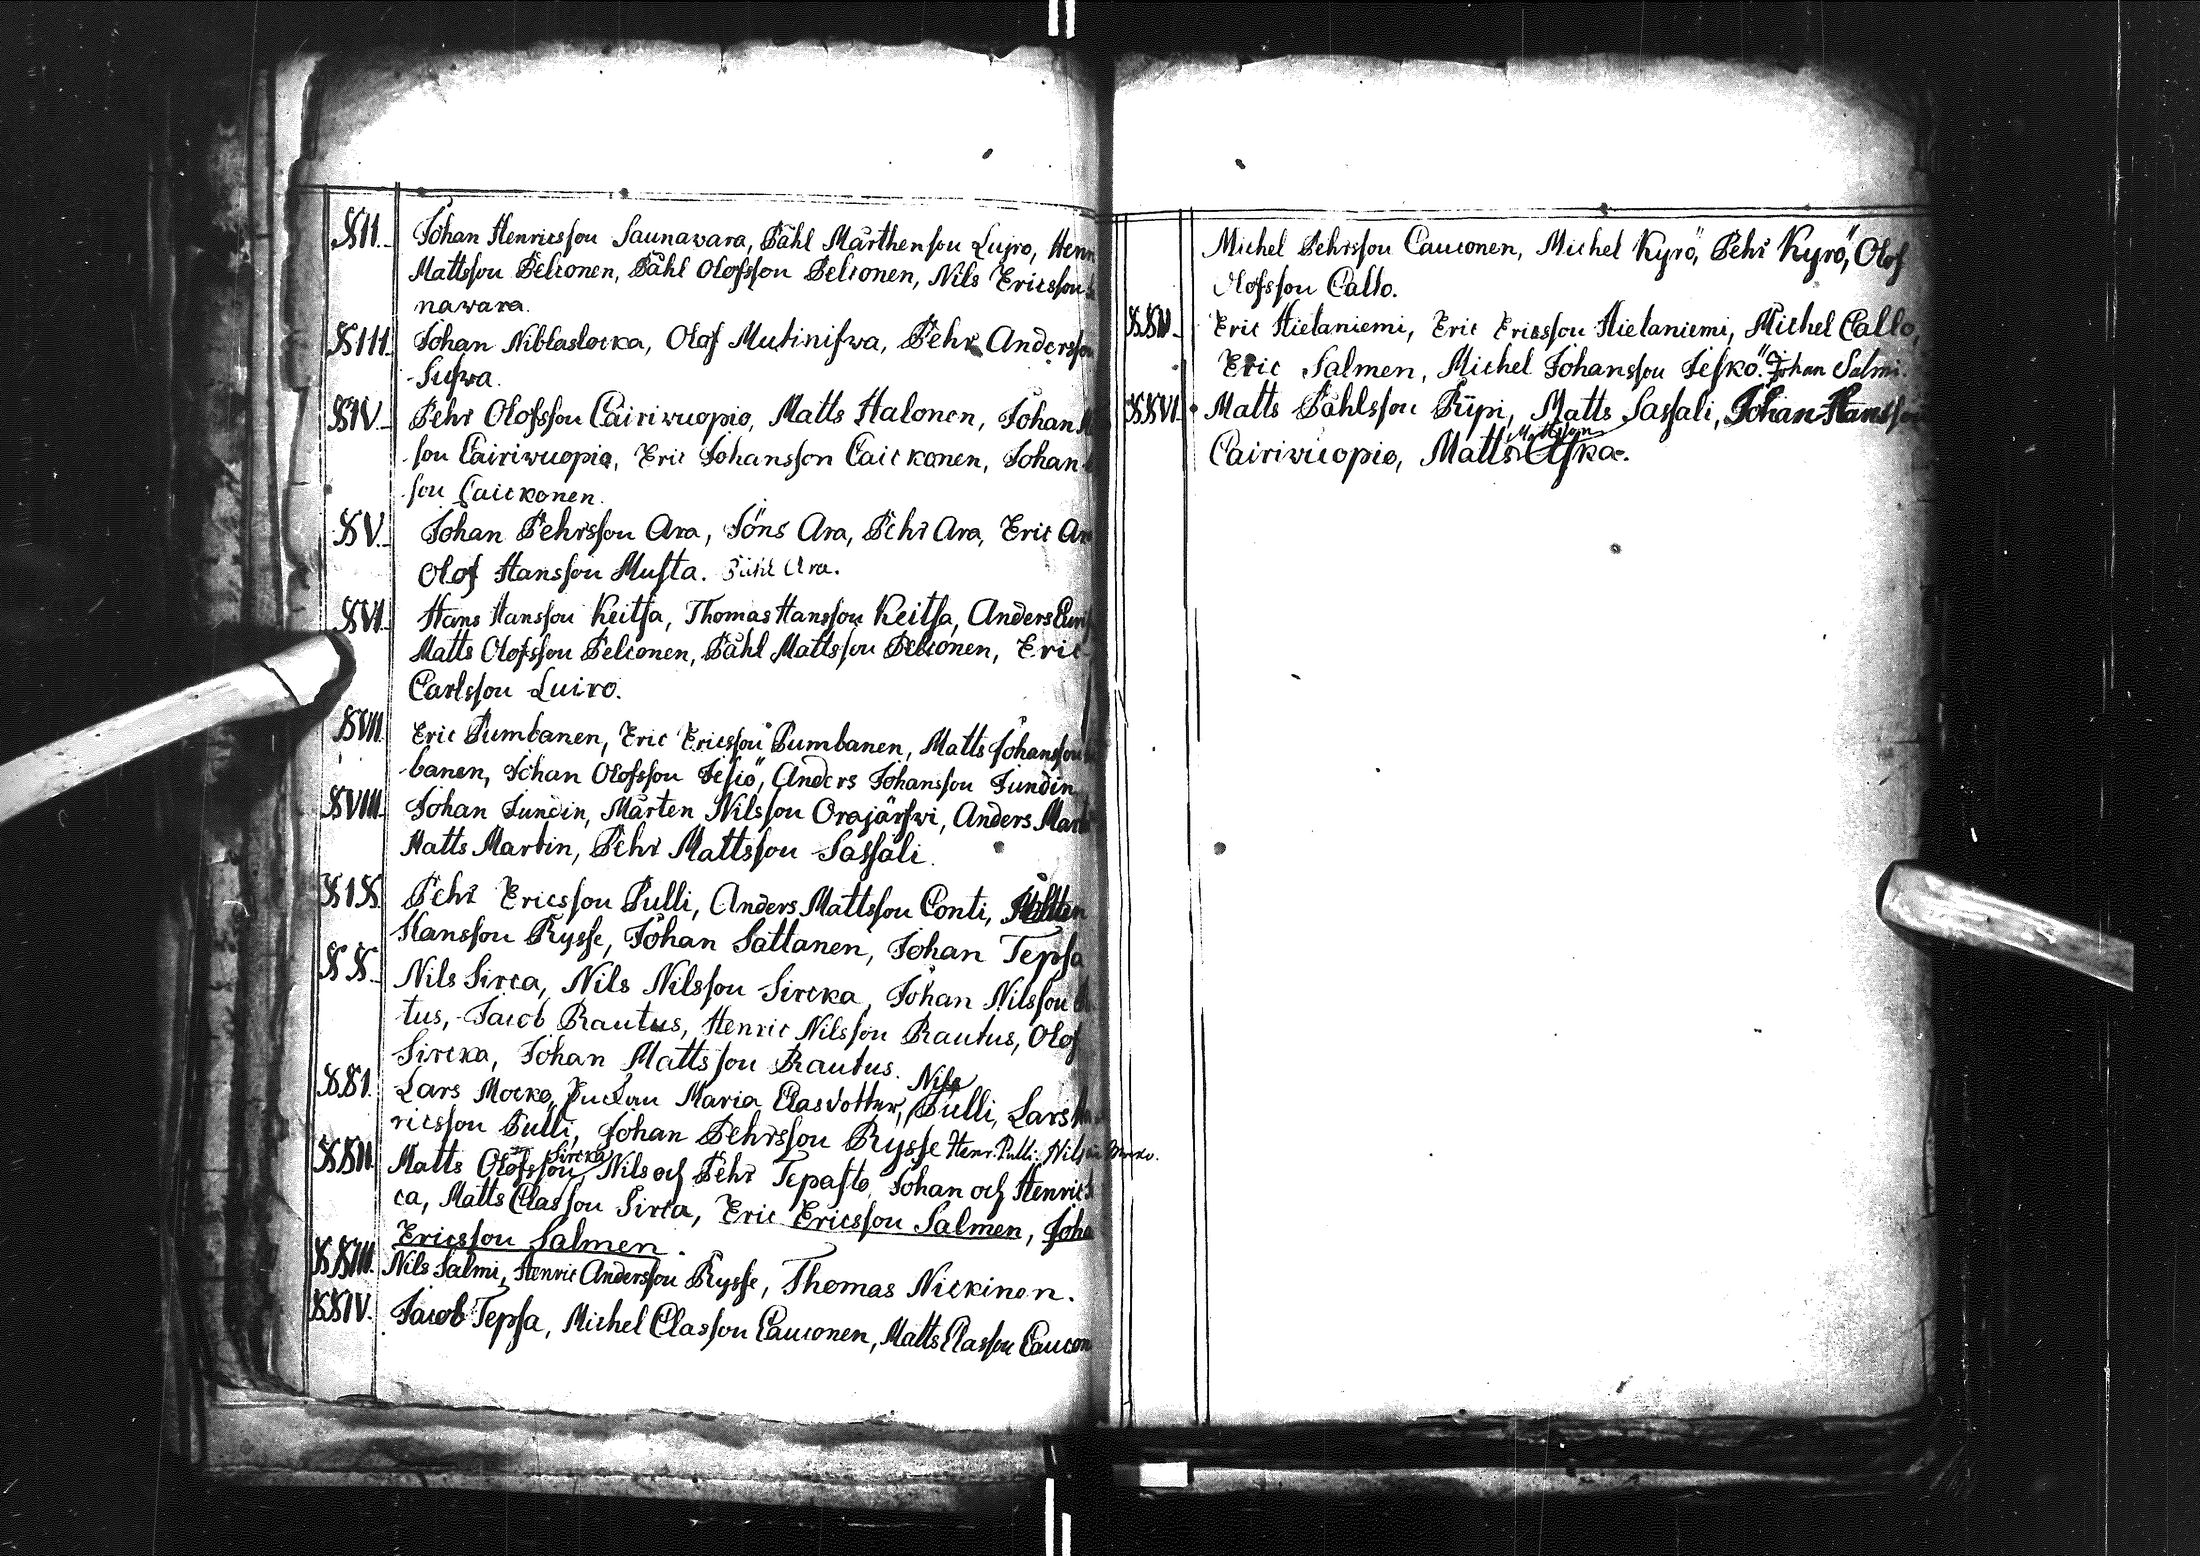 XII. Johan Henricsson Saunawara, Påhl Mårthensson Lujro, Hen
Mattsson Pelconen, Påhl Olofsson Pelconen, Nils Ericsson
nawara.
XIII. Johan Niblaslocka, Olof Mutiniswa, Pehr Andersson
Suswa.
XIV. Pehr Olofsson Cairiwuopio, Matts Halonen, Johan
son Cairiwuopio, Eric Johansson Caickonen, Johan
son Caickonen.
XV. Johan Pehrsson Ara, Jöns Ara, Pehr Ara, Eric Ar
Olof Hansson Musta. Påhl Ara.
XVI. Hans Hansson Keitsa, Thomas Hansson Keitsa, Anders
Matts Olofsson Pelconen, Påhl Mattsson Pelconen, Eric
Carlsson Luiro.
XVII. Eric Pumbanen, Eric Ericsson Pumbanen, Matts Johansson
banen, Johan Olofsson Jesiö, Anders Johansson Sundin
XVIII. Johan Sundin, Mårten Nilsson Orajärfwi, Anders Mart
Matts Martin, Pehr Mattsson Sassali.
XIX. Pehr Ericsson Pulli, Anders Mattsson Conti,
Hansson Rysse, Johan Sattanen, Johan Tepsa
XX. Nils Sirca, Nils Nilsson Sircka, Johan Nilsson
tus, Jacob Rautus, Henric Nilsson Rautus, Olof
Sircka, Johan Mattsson Rautus.
XXI. Lars Mocko, Maria Clasdotter, Nils Pulli, Lars
ricsson Pulli, Johan Pehrsson Rysse Henr. Pulli. Nils
XXII. Matts Olofsson Sircka, Nils och Pehr Tepasto, Johan och Henric
ca, Matts Classon Sirca, Eric Ericsson Salmen, Joha
Ericsson Salmen.
XXIII. Nils Salmi, Henric Andersson Rysse, Thomas Nickinen.
XXIV. Jacob Tepsa, Michel Classon Cauconen, Matts Classon Caucon
Michel Pehrsson Cauconen, Michel Kyrö, Pehr Kyrö, Olof
Olofsson Callo.
XXV. Eric Hietaniemi, Eric Ericsson Hietaniemi, Michel Callo,
Eric Salmen, Michel Johansson Jeskö. Johan Salmi.
XXVI. Matts Påhlsson Rÿpi, Matts Sassali, Johan Hansson
Cairiwuopio, Matts Mattsson Aska.